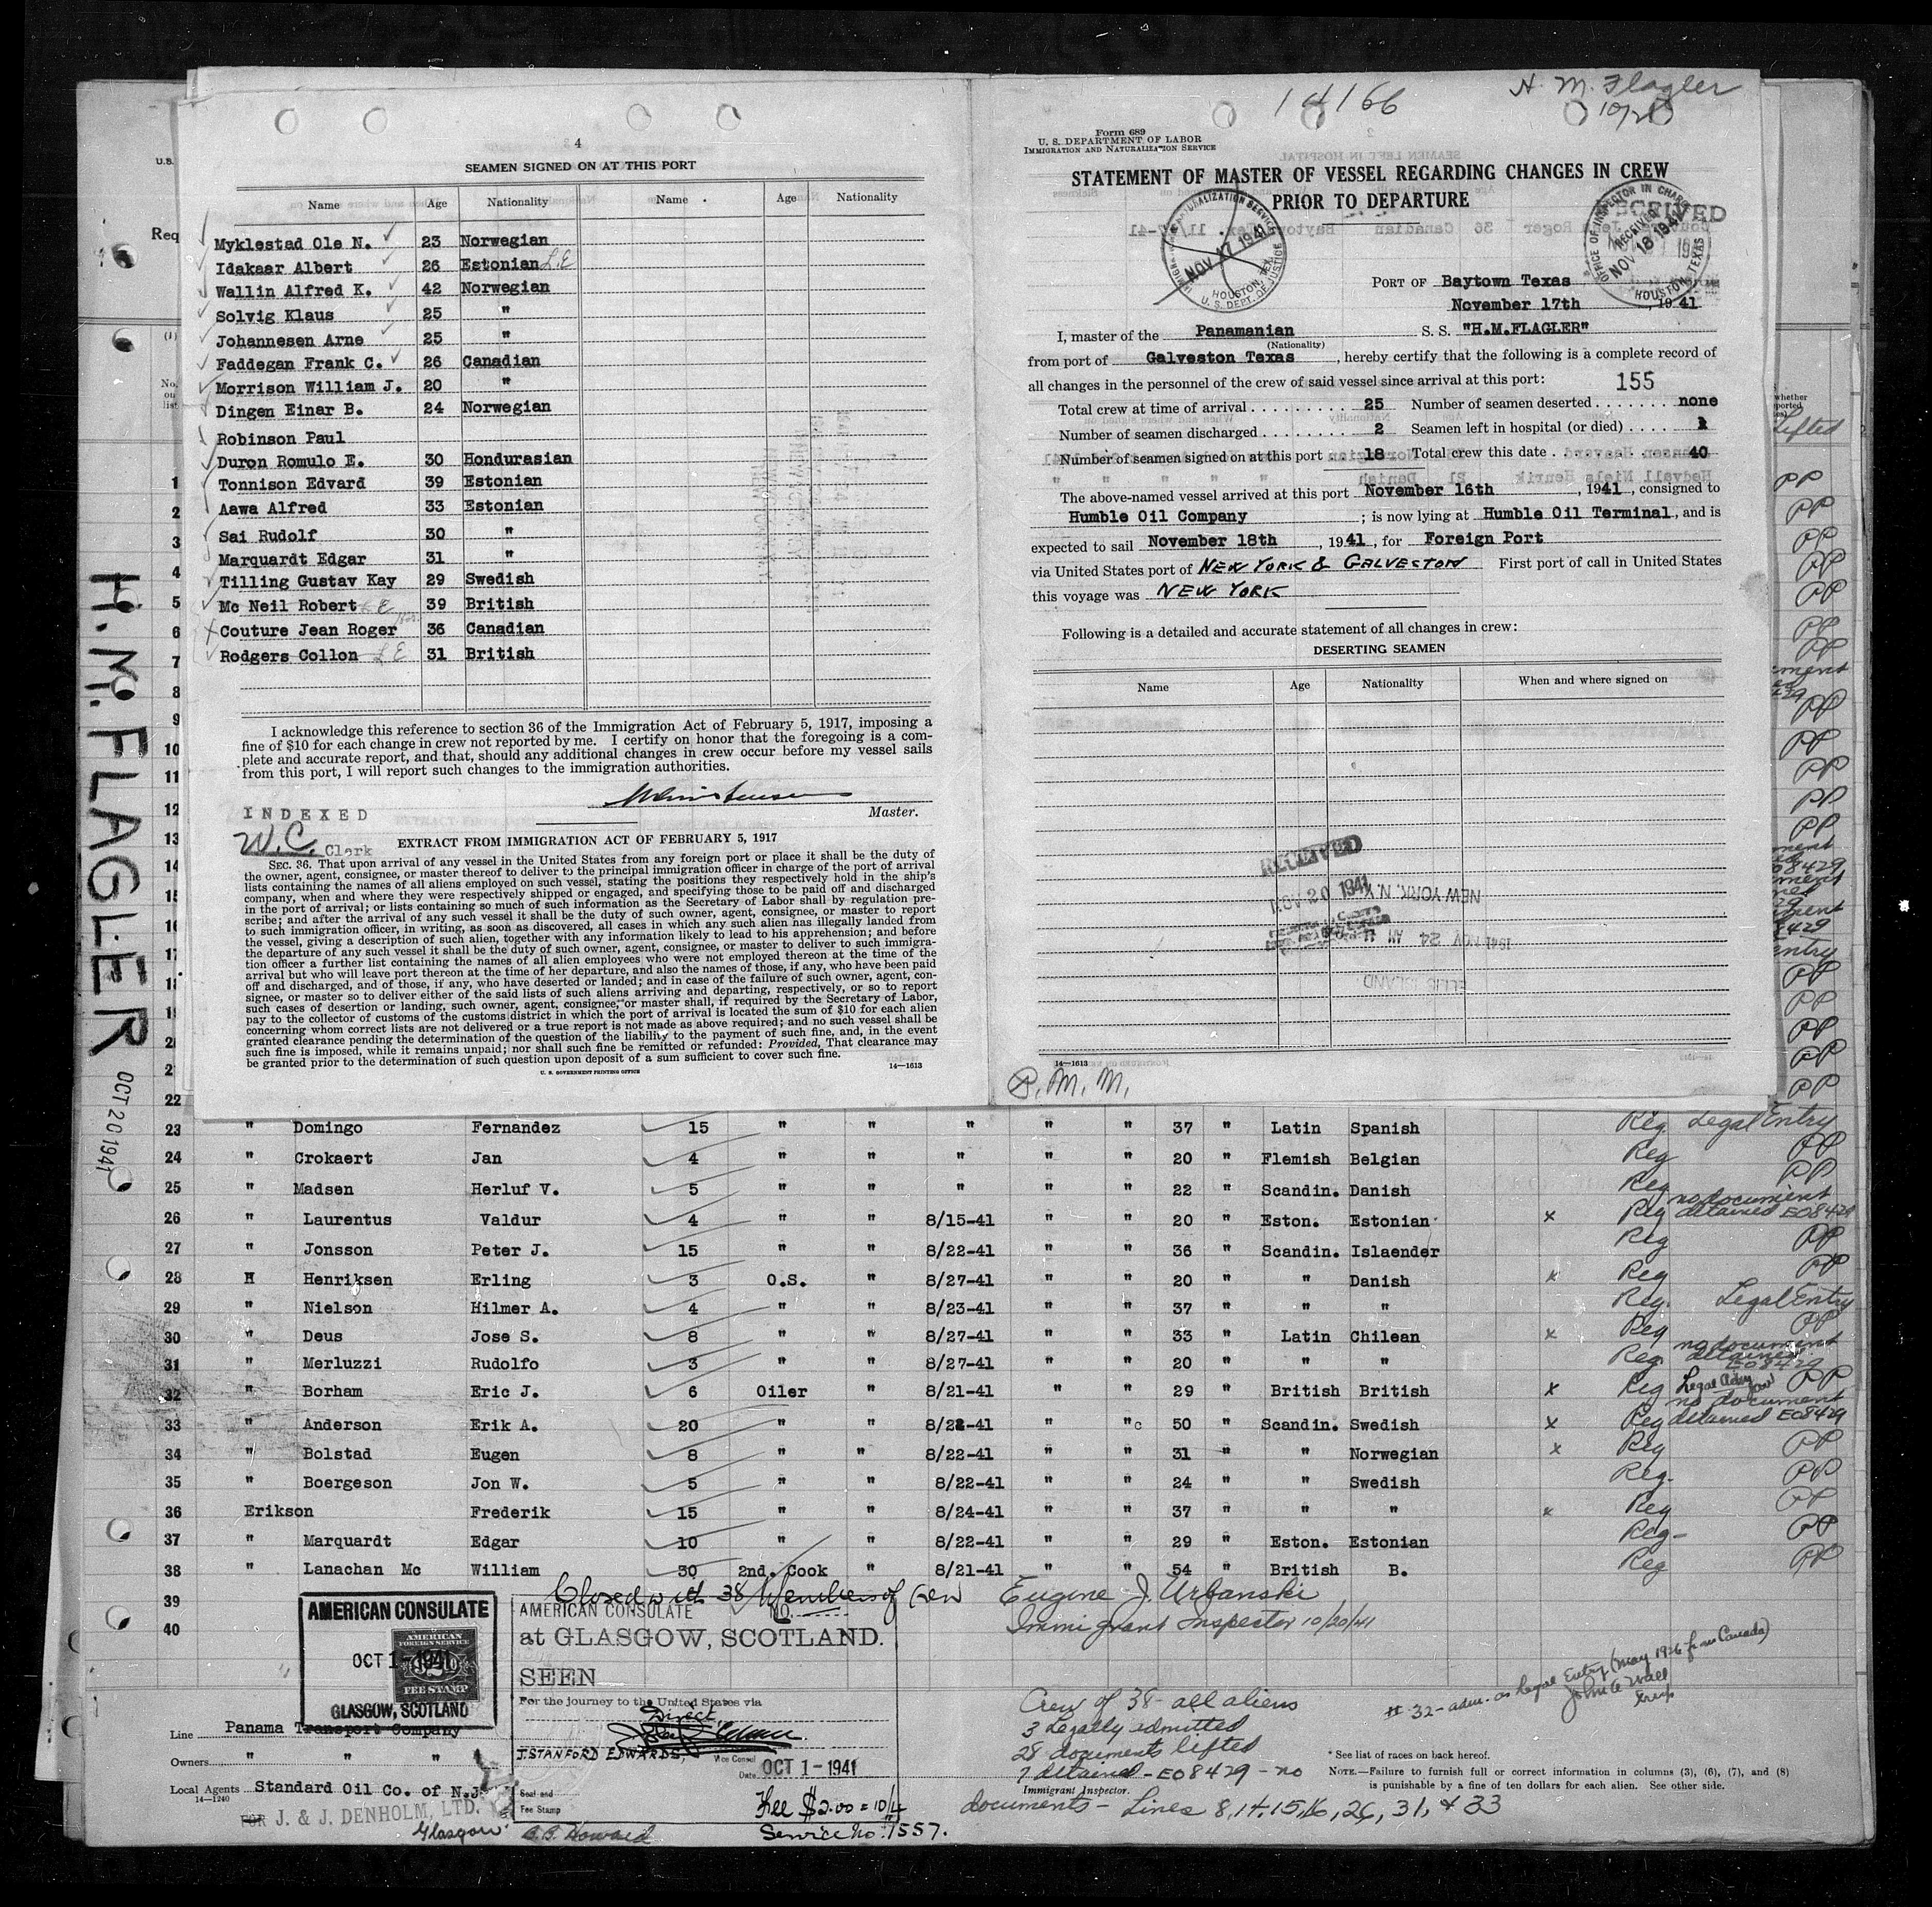 4
SEAMEN SIGNED ON AT THIS PORT
Name Age Nationality Name Age Nationality
Myklestad Ole N. 23 Norwegian
Idakaar Albert 26 Estonian L.E
Wallin Alfred K. 42 Norwegian
Solvig Klaus 25 "
Johannesen Arne 25 "
Faddegan Frank C. 26 Canadian
Morrison William J. 20 "
Dingen Einar B. 24 Norwegian
Robinson Paul
Duron Romulo E. 30 Hondurasian
Tonnison Edvard 39 Estonian
Aawa Alfred 33 Estonian
Sai Rudolf 30 "
Marquardt Edgar 31 "
Tilling Gustav Kay 29 Swedish
Mc Neil Robert 39 British
Couture Jean Roger 36 Canadian
Rodgers Collon L E 31 British
I acknowledge this reference to section 36 of the Immigration Act of February 5, 1917, imposing a
fine of $10 for each change in crew not reported by me. I certify on honor that the foregoing is a com-
plete and accurate report, and that, should any additional changes in crew occur before my vessel sails
from this port, I will report such changes to the immigration authorities.
Master.
INDEXED
W.C. Clerk
EXTRACT FROM IMMIGRATION ACT OF FEBRUARY 5, 1917
SEC. 36. That upon arrival of any vessel in the United States from any foreign port or place it shall be the duty of
the owner, agent, consignee, or master thereof to deliver to the principal immigration officer in charge of the port of arrival
lists containing the names of all aliens employed on such vessel, stating the positions they respectively hold in the ship's
company, when and where they were respectively shipped or engaged, and specifying those to be paid off and discharged
in the port of arrival; or lists containing so much of such information as the Secretary of Labor shall by regulation pre-
scribe; and after the arrival of any such vessel it shall be the duty of such owner, agent, consignee, or master to report
to such immigration officer, in writing, as soon as discovered, all cases in which any such alien has illegally landed from
the vessel, giving a description of such alien, together with any information likely to lead to his apprehension; and before
the departure of any such vessel it shall be the duty of such owner, agent, consignee, or master to deliver to such immigra-
tion officer a further list containing the names of all alien employees who were not employed thereon at the time of the
arrival but who will leave port thereon at the time of her departure, and also the names of those, if any, who have been paid
off and discharged, and of those, if any, who have deserted or landed; and in case of the failure of such owner, agent, con-
signee, or master so to deliver either of the said lists of such aliens arriving and departing, respectively, or so to report
such cases of desertion or landing, such owner, agent, consignee, or master shall, if required by the Secretary of Labor,
pay to the collector of customs of the customs district in which the port of arrival is located the sum of $10 for each alien
concerning whom correct lists are not delivered or a true report is not made as above required; and no such vessel shall be
granted clearance pending the determination of the question of the liability to the payment of such fine, and, in the event
such fine is imposed, while it remains unpaid; nor shall such fine be remitted or refunded: Provided, That clearance may
be granted prior to the determination of such question upon deposit of a sum sufficient to cover such fine.
U. S. GOVERNMENT PRINTING OFFICE 14—1613
14166
H. M. Flagler
10/20
Form 689
U. S. DEPARTMENT OF LABOR
IMMIGRATION AND NATURALIZATION SERVICE
STATEMENT OF MASTER OF VESSEL REGARDING CHANGES IN CREW
PRIOR TO DEPARTURE
NOV 17 1941
HOUSTON, TEX.
U. S. DEPT. OF JUSTICE
OFFICE OF INSPECTOR IN CHARGE
RECEIVED
NOV 18 1941
HOUSTON, TEXAS
RECEIVED
PORT OF Baytown Texas
November 17th, 1941
I, master of the Panamanian S. S. "H.M.FLAGLER"
(Nationality)
from port of Galveston Texas, hereby certify that the following is a complete record of
all changes in the personnel of the crew of said vessel since arrival at this port: 155
Total crew at time of arrival 25 Number of seamen deserted none
Number of seamen discharged 2 Seamen left in hospital (or died) 1
Number of seamen signed on at this port 18 Total crew this date 40
The above-named vessel arrived at this port November 16th, 1941, consigned to
Humble Oil Company; is now lying at Humble Oil Terminal, and is
expected to sail November 18th, 1941, for Foreign Port
via United States port of NEW YORK & GALVESTON First port of call in United States
this voyage was NEW YORK
Following is a detailed and accurate statement of all changes in crew:
DESERTING SEAMEN
Name Age Nationality When and where signed on
RECEIVED
NOV 20 1941
NEW YORK, N.Y.
1941 NOV 24 AM
ELLIS ISLAND
14—1613
P. M. M.
H. M. FLAGLER OCT 20 1941
23 " Domingo Fernandez 15 " " " " " 37 " Latin Spanish Reg Legal Entry
24 " Crokaert Jan 4 " " " " " 20 " Flemish Belgian Reg PP
25 " Madsen Herluf V. 5 " " " " " 22 " Scandin. Danish Reg PP
26 " Laurentus Valdur 4 " " 8/15-41 " " 20 " Eston. Estonian x Reg no document detained E08429
27 " Jonsson Peter J. 15 " " 8/22-41 " " 36 " Scandin. Islaender Reg PP
28 " Henriksen Erling 3 O.S. " 8/27-41 " " 20 " " Danish x Reg PP
29 " Nielson Hilmer A. 4 " " 8/23-41 " " 37 " " " Reg. Legal Entry
30 " Deus Jose S. 8 " " 8/27-41 " " 33 " Latin Chilean x Reg PP
31 " Merluzzi Rudolfo 3 " " 8/27-41 " " 20 " " " Reg. no document detained E08429
32 " Borham Eric J. 6 Oiler " 8/21-41 " " 29 " British British x Reg Legal PP
33 " Anderson Erik A. 20 " " 8/22-41 " " 50 " Scandin. Swedish x Reg no document detained E08429
34 " Bolstad Eugen 8 " " 8/22-41 " " 31 " " Norwegian x Reg PP
35 " Boergeson Jon W. 5 " " 8/22-41 " " 24 " " Swedish Reg. PP
36 Erikson Frederik 15 " " 8/24-41 " " 37 " " " x Reg PP
37 " Marquardt Edgar 10 " " 8/22-41 " " 29 " Eston. Estonian Reg- PP
38 " Lanachan Mc William 30 2nd. Cook " 8/21-41 " " 54 " British B. Reg PP
39
40
Closed with 38 Members of Crew Eugene J. Urbanski
Immigrant Inspector 10/20/41
AMERICAN CONSULATE
AMERICAN
FOREIGN SERVICE
OCT 1-1941
FEE STAMP
GLASGOW, SCOTLAND
AMERICAN CONSULATE NO.
at GLASGOW, SCOTLAND.
SEEN
For the journey to the United States via
Direct
J. STANFORD EDWARDS, Vice Consul
Date OCT 1-1941
Seal and
Fee Stamp
Fee $2.00 = 10/4
Service No. 1557.
B. B. Howard
Line Panama Transport Company
Owners " " "
Local Agents Standard Oil Co. of N.J.
14—1240
FOR J. & J. DENHOLM, LTD.
Glasgow
Crew of 38 - all aliens
3 Legally admitted
28 documents lifted
7 detained - E08429 - no
Immigrant Inspector.
documents - Lines 8, 14, 15, 16, 26, 31, & 33
# 32 - adm. as Legal Entry (May 1926 from Canada)
John A Wall
* See list of races on back hereof.
NOTE.—Failure to furnish full or correct information in columns (3), (6), (7), and (8)
is punishable by a fine of ten dollars for each alien. See other side.